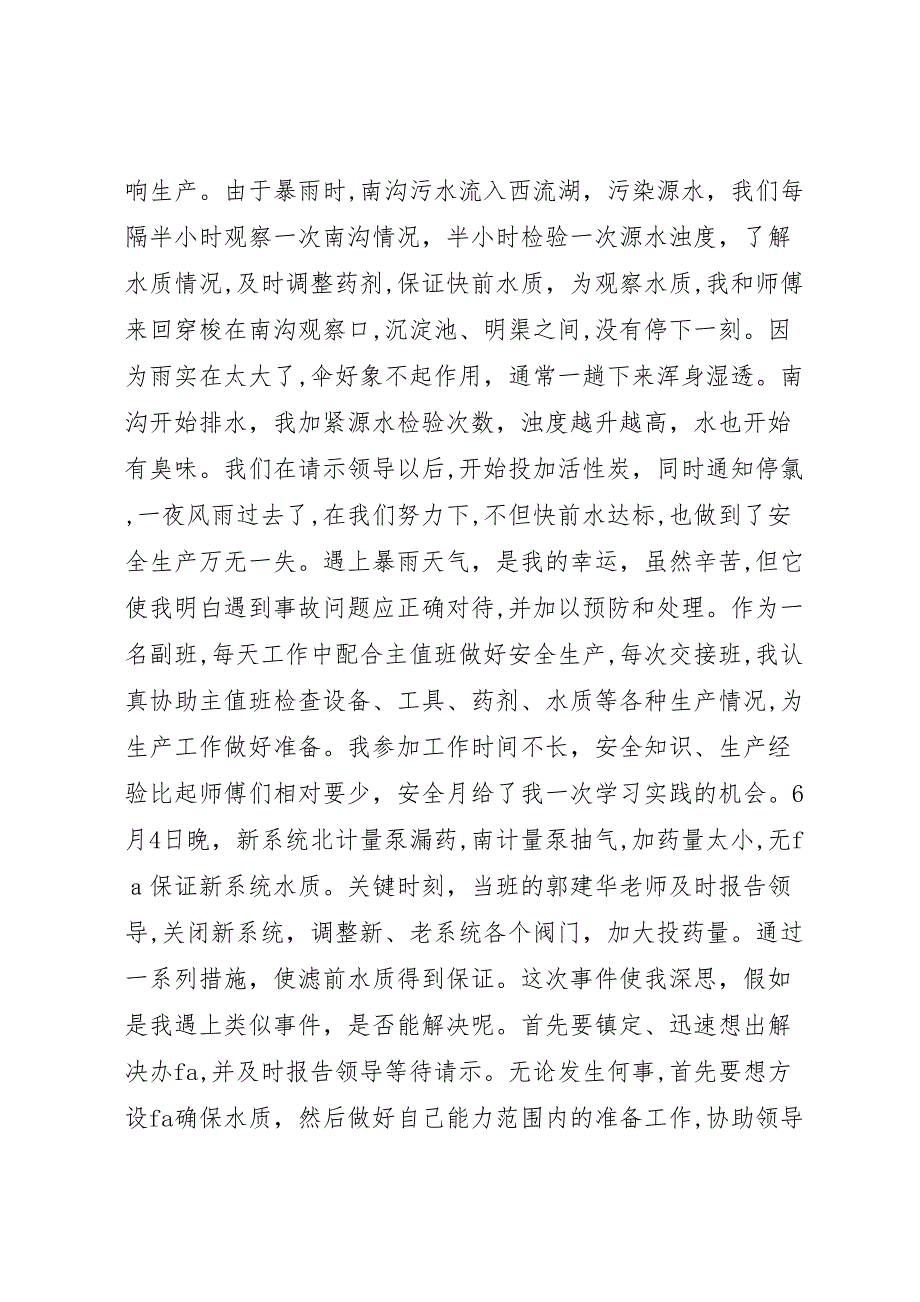 响生产。由于暴雨时,南沟污水流入西流湖，污染源水，我们每
隔半小时观察一次南沟情况，半小时检验一次源水浊度，了解
水质情况,及时调整药剂,保证快前水质，为观察水质,我和师傅
来回穿梭在南沟观察口,沉淀池、明渠之间,没有停下一刻。因
为雨实在太大了,伞好象不起作用，通常一趟下来浑身湿透。南
沟开始排水，我加紧源水检验次数，浊度越升越高，水也开始
有臭味。我们在请示领导以后,开始投加活性炭，同时通知停氯
,一夜风雨过去了,在我们努力下,不但快前水达标,也做到了安
全生产万无一失。遇上暴雨天气，是我的幸运，虽然辛苦,但它
使我明白遇到事故问题应正确对待,并加以预防和处理。作为一
名副班,每天工作中配合主值班做好安全生产,每次交接班,我认
真协助主值班检查设备、工具、药剂、水质等各种生产情况,为
生产工作做好准备。我参加工作时间不长，安全知识、生产经
验比起师傅们相对要少，安全月给了我一次学习实践的机会。6
月4日晚，新系统北计量泵漏药,南计量泵抽气,加药量太小,无f
a保证新系统水质。关键时刻，当班的郭建华老师及时报告领
导,关闭新系统，调整新、老系统各个阀门，加大投药量。通过
一系列措施，使滤前水质得到保证。这次事件使我深思，假如
是我遇上类似事件，是否能解决呢。首先要镇定、迅速想出解
决办fa,并及时报告领导等待请示。无论发生何事,首先要想方
设fa确保水质，然后做好自己能力范围内的准备工作,协助领导